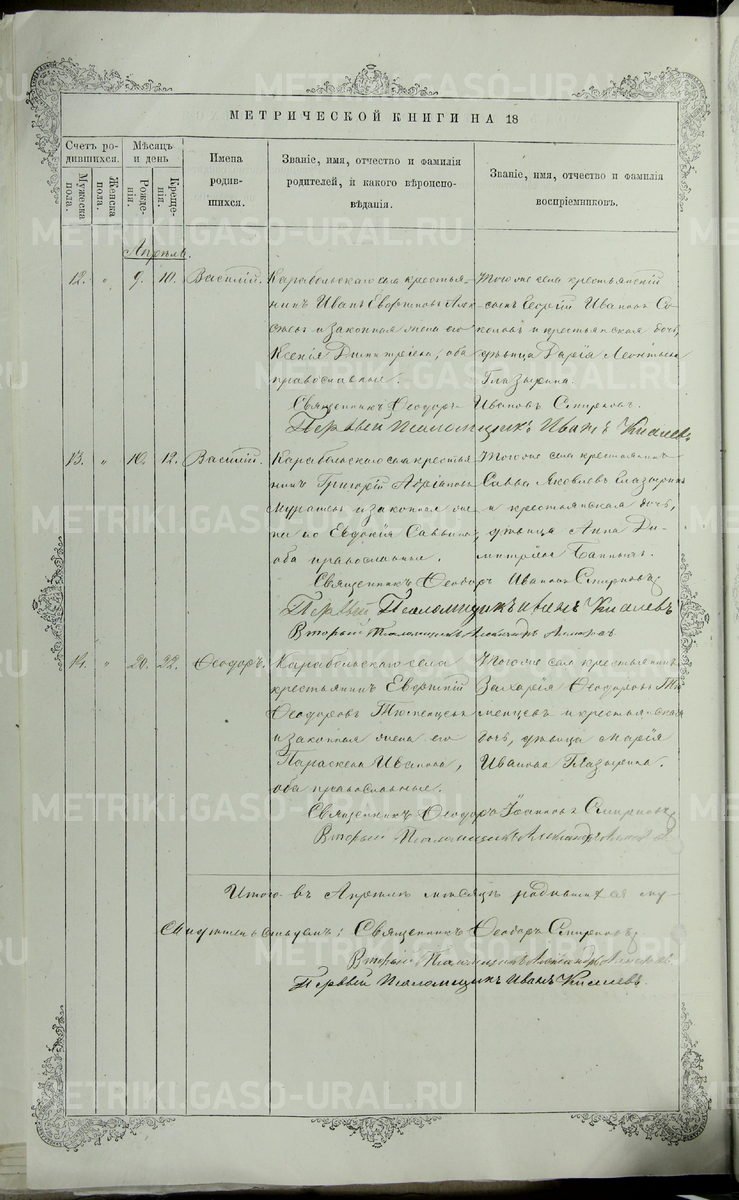 МЕТРИЧЕСКОЙ КНИГИ НА 18
Счетъ родившихся.
Мужеска пола.
Женска пола.
Мѣсяцъ и день
Рожденія.
Крещенія.
Имена родившихся.
Званіе, имя, отчество и фамилія
родителей, и какого вѣроиспо-
вѣданія.
Званіе, имя, отчество и фамилія
воспріемниковъ.
Апрѣль.
12. " 9. 10. Василій.
Карабольскаго села крестья-
нинъ Иванъ
и законная жена его
Ксенія Димитріева, оба
православные.
Того же села крестьянскій
сынъ Георгій Ивановъ Со-
коловъ и крестьянская дочь,
дѣвица Дарія Леонтьева
Глазырина.
Священникъ Ѳеодоръ Ивановъ Смирновъ.
Первый Псаломщикъ Иванъ Киселевъ
13. " 10. 12. Василій.
Карабольскаго села крестья-
нинъ Григорій
и законная же-
на его Евдокія Саввина,
оба православные.
Того же села крестьянинъ
Савва Яковлевъ Глазыринъ
и крестьянская дочь,
дѣвица Анна Ди-
митріева
Священникъ Ѳеодоръ Ивановъ Смирновъ
Первый Псаломщикъ Иванъ Киселевъ
Второй Псаломщикъ Александръ
14. " 20. 22. Ѳеодоръ.
Карабольскаго села
крестьянинъ Евгеній
Ѳеодоровъ Тюменцевъ
и законная жена его
Параскева Иванова,
оба православные.
Того же села крестьянинъ
Захарія Ѳеодоровъ Тю-
менцевъ и крестьянская
дочь, дѣвица Марія
Иванова Глазырина.
Священникъ Ѳеодоръ Іоанновъ Смирновъ
Второй Псаломщикъ Александръ
Итого въ Апрѣлѣ мѣсяцѣ родившихся му-
Священникъ Ѳеодоръ Смирновъ
Второй Псаломщикъ Александръ
Первый Псаломщикъ Иванъ Киселевъ.
METRIKI.GASO-URAL.RU